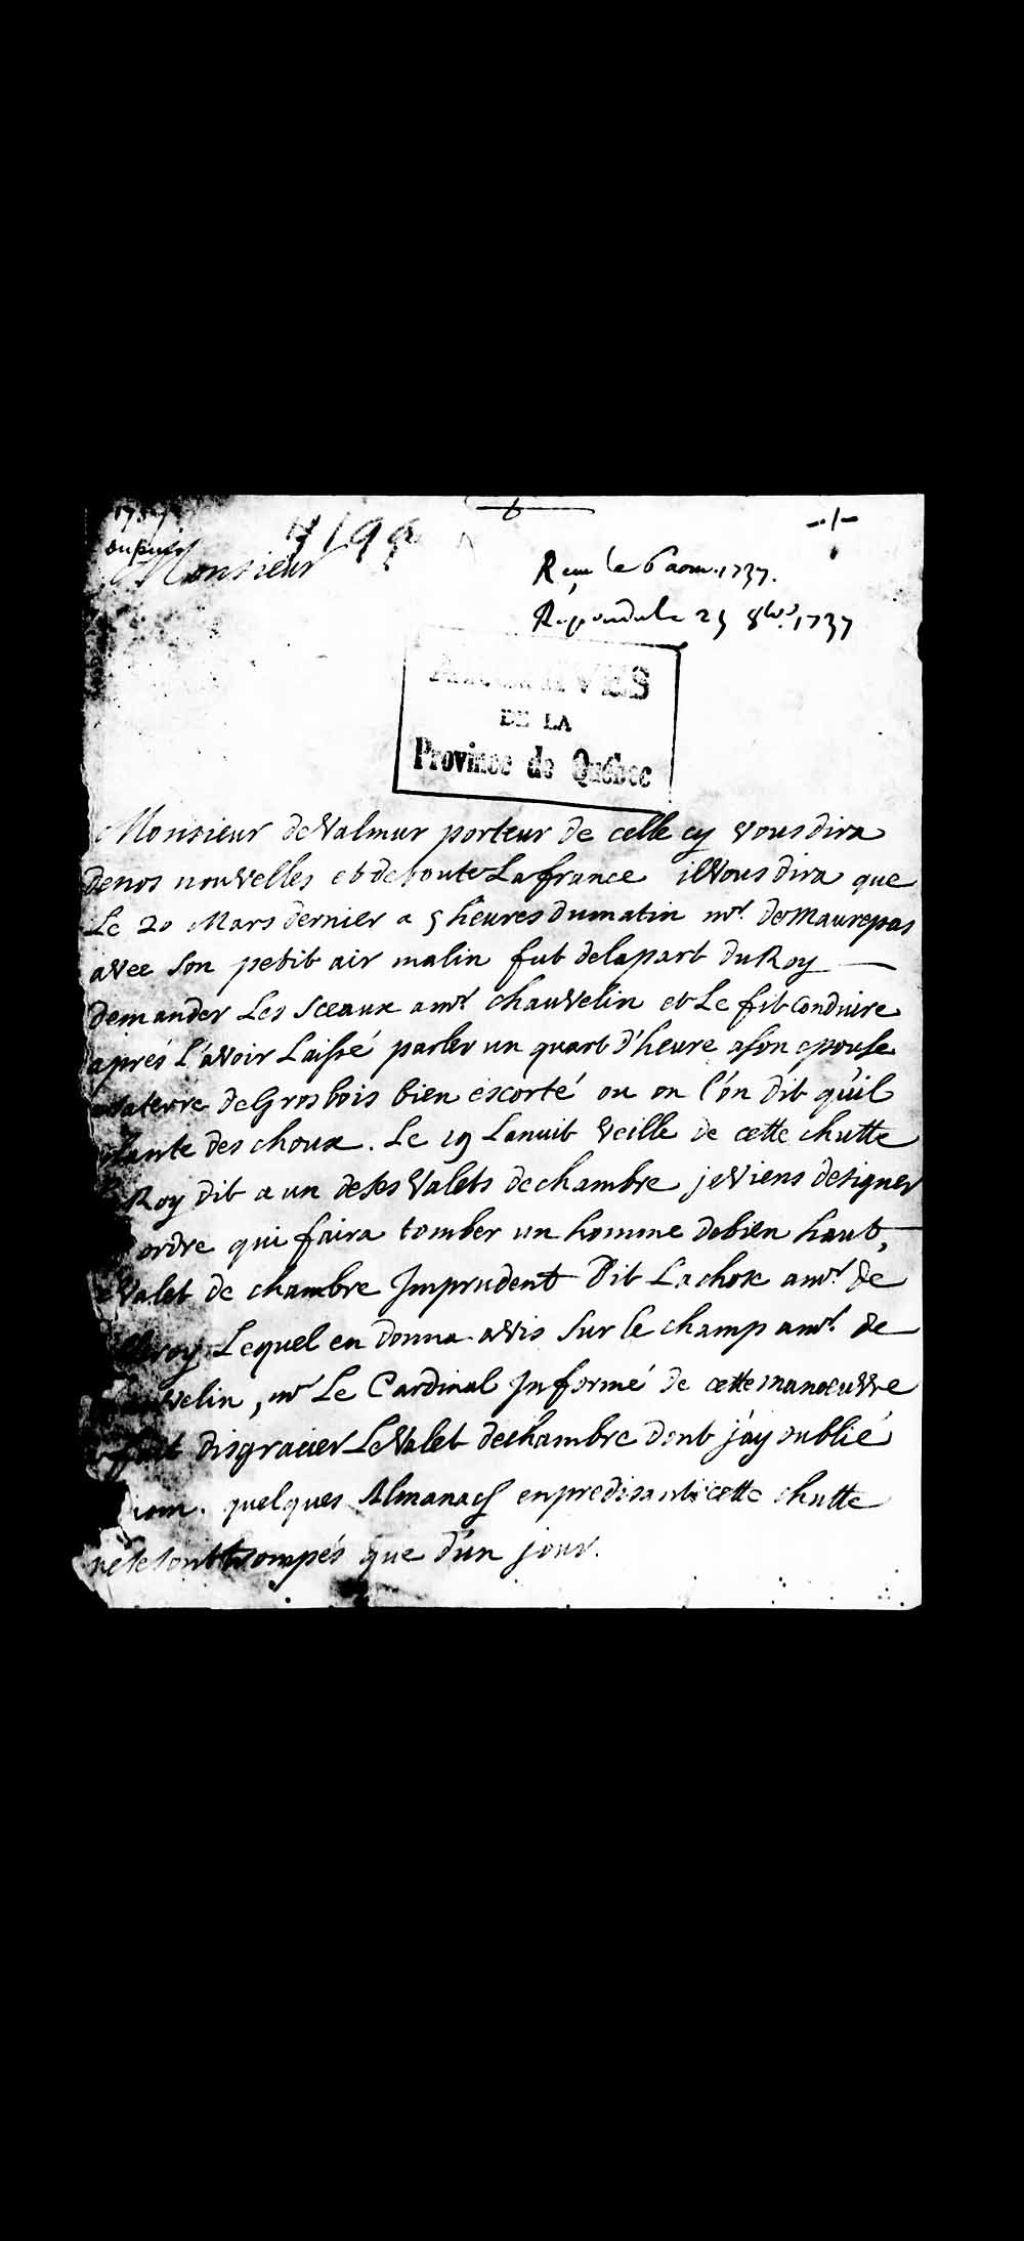 1737
dupuis
Monsieur
Reçu le 6 aou. 1737.
Repondu le 25 8bre 1737
ARCHIVES
DE LA
Province de Québec
Monsieur deValmur porteur de celle cy vous dira
denos nouvelles et de toute Lafrance ilVous dira que
Le 20 Mars dernier a 5 heures dumatin mr. deMaurepas
avec son petit air malin fut delapart du Roy
demander Les Sceaux amr. chauvelin et Le fit Conduire
aprés l'avoir Laissé parler un quart d'heure ason epouse
alaterre deGrosbois bien escorté ou on l'on dit qu'il
plante des choux. Le 19 Lanuit veille de cette chutte
Roy dit a un deses Valets dechambre jeViens designer
ordre qui faira tomber un homme debien haut,
Valet de chambre Imprudent Dit Lachose amr. de
Lequel en donna avis sur le champ amr. de
velin, mr Le Cardinal Informé de cette manoeuvre
fait disgracier LeValet dechambre dont j'ay oublié
nom. quelques Almanach enpredisant cette chutte
nesesont trompés que d'un jour.